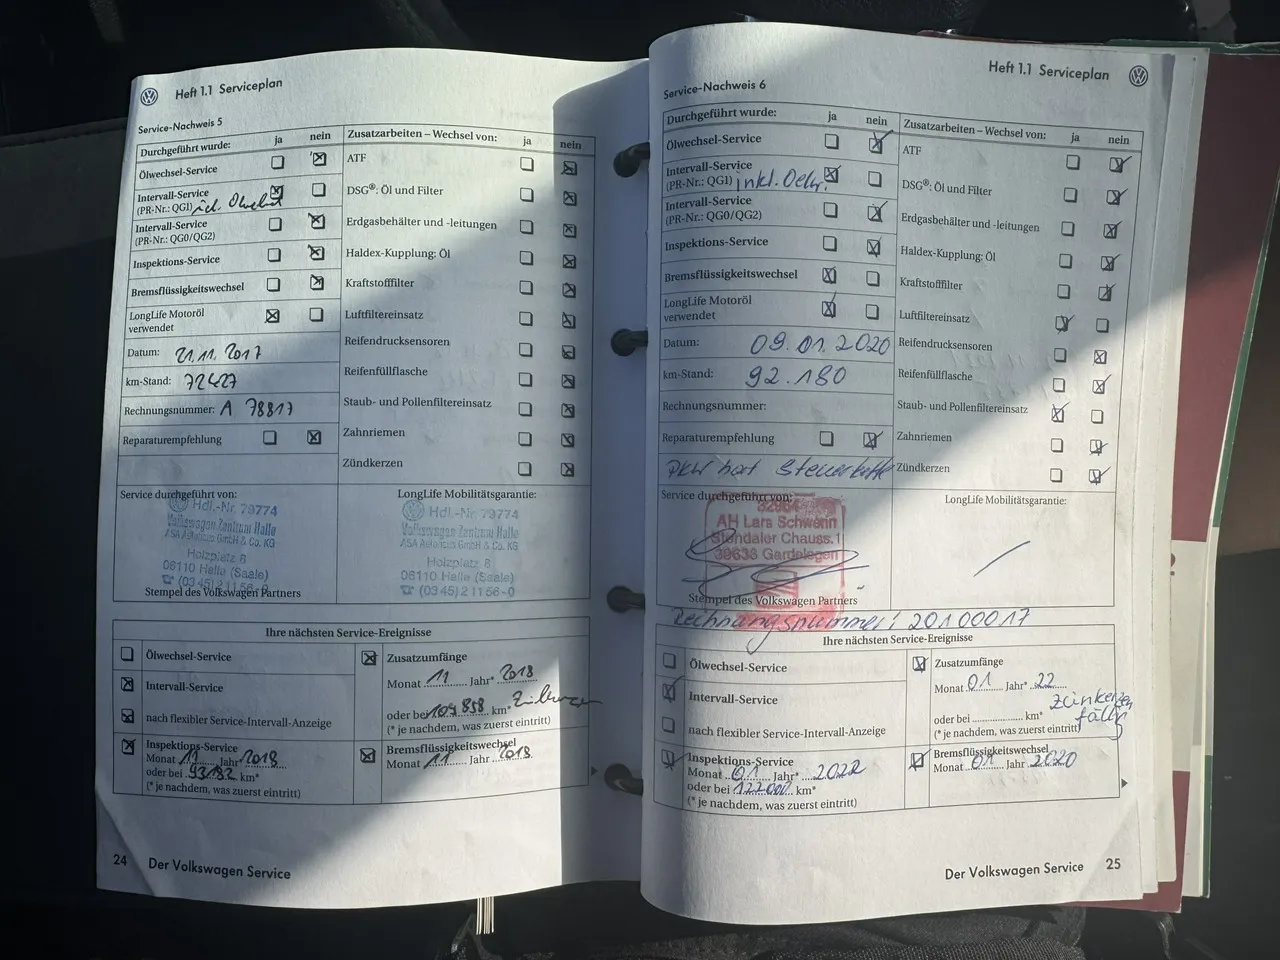 Heft 1.1 Serviceplan
Service-Nachweis 5
Durchgeführt wurde: ja nein
Ölwechsel-Service
Intervall-Service
(PR-Nr.: QG1)
Intervall-Service
(PR-Nr.: QG0/QG2)
Inspektions-Service
Bremsflüssigkeitswechsel
LongLife Motoröl
verwendet
Datum: 21.11.2017
km-Stand: 72427
Rechnungsnummer: A 78817
Reparaturempfehlung
Zusatzarbeiten – Wechsel von: ja nein
ATF
DSG®: Öl und Filter
Erdgasbehälter und -leitungen
Haldex-Kupplung: Öl
Kraftstofffilter
Luftfiltereinsatz
Reifendrucksensoren
Reifenfüllflasche
Staub- und Pollenfiltereinsatz
Zahnriemen
Zündkerzen
Service durchgeführt von:
Hdl.-Nr. 79774
Volkswagen Zentrum Halle
ASA Autohaus GmbH & Co. KG
Holzplatz 8
06110 Halle (Saale)
☎ (0345) 21156-0
Stempel des Volkswagen Partners
LongLife Mobilitätsgarantie:
Hdl.-Nr. 79774
Volkswagen Zentrum Halle
ASA Autohaus GmbH & Co. KG
Holzplatz 8
06110 Halle (Saale)
☎ (0345) 21156-0
Ihre nächsten Service-Ereignisse
Ölwechsel-Service
Intervall-Service
nach flexibler Service-Intervall-Anzeige
Inspektions-Service
Monat 11 Jahr* 2018
oder bei 93182 km*
(* je nachdem, was zuerst eintritt)
Zusatzumfänge
Monat 11 Jahr* 2018
oder bei 104858 km*
(* je nachdem, was zuerst eintritt)
Bremsflüssigkeitswechsel
Monat 11 Jahr 2018
24 Der Volkswagen Service
Heft 1.1 Serviceplan
Service-Nachweis 6
Durchgeführt wurde: ja nein
Ölwechsel-Service
Intervall-Service
(PR-Nr.: QG1) inkl. Oelw.
Intervall-Service
(PR-Nr.: QG0/QG2)
Inspektions-Service
Bremsflüssigkeitswechsel
LongLife Motoröl
verwendet
Datum: 09.01.2020
km-Stand: 92.180
Rechnungsnummer:
Reparaturempfehlung
PKW hat Steuerkette
Zusatzarbeiten – Wechsel von: ja nein
ATF
DSG®: Öl und Filter
Erdgasbehälter und -leitungen
Haldex-Kupplung: Öl
Kraftstofffilter
Luftfiltereinsatz
Reifendrucksensoren
Reifenfüllflasche
Staub- und Pollenfiltereinsatz
Zahnriemen
Zündkerzen
Service durchgeführt von:
32964
AH Lars Schwerin
Stendaler Chauss. 1
39638 Gardelegen
Stempel des Volkswagen Partners
LongLife Mobilitätsgarantie:
Rechnungsnummer: 20100017
Ihre nächsten Service-Ereignisse
Ölwechsel-Service
Intervall-Service
nach flexibler Service-Intervall-Anzeige
Inspektions-Service
Monat 01 Jahr* 2022
oder bei 122000 km*
(* je nachdem, was zuerst eintritt)
Zusatzumfänge
Monat 01 Jahr* 22
oder bei km*
(* je nachdem, was zuerst eintritt)
fällig
Bremsflüssigkeitswechsel
Monat 01 Jahr 2020
Der Volkswagen Service 25